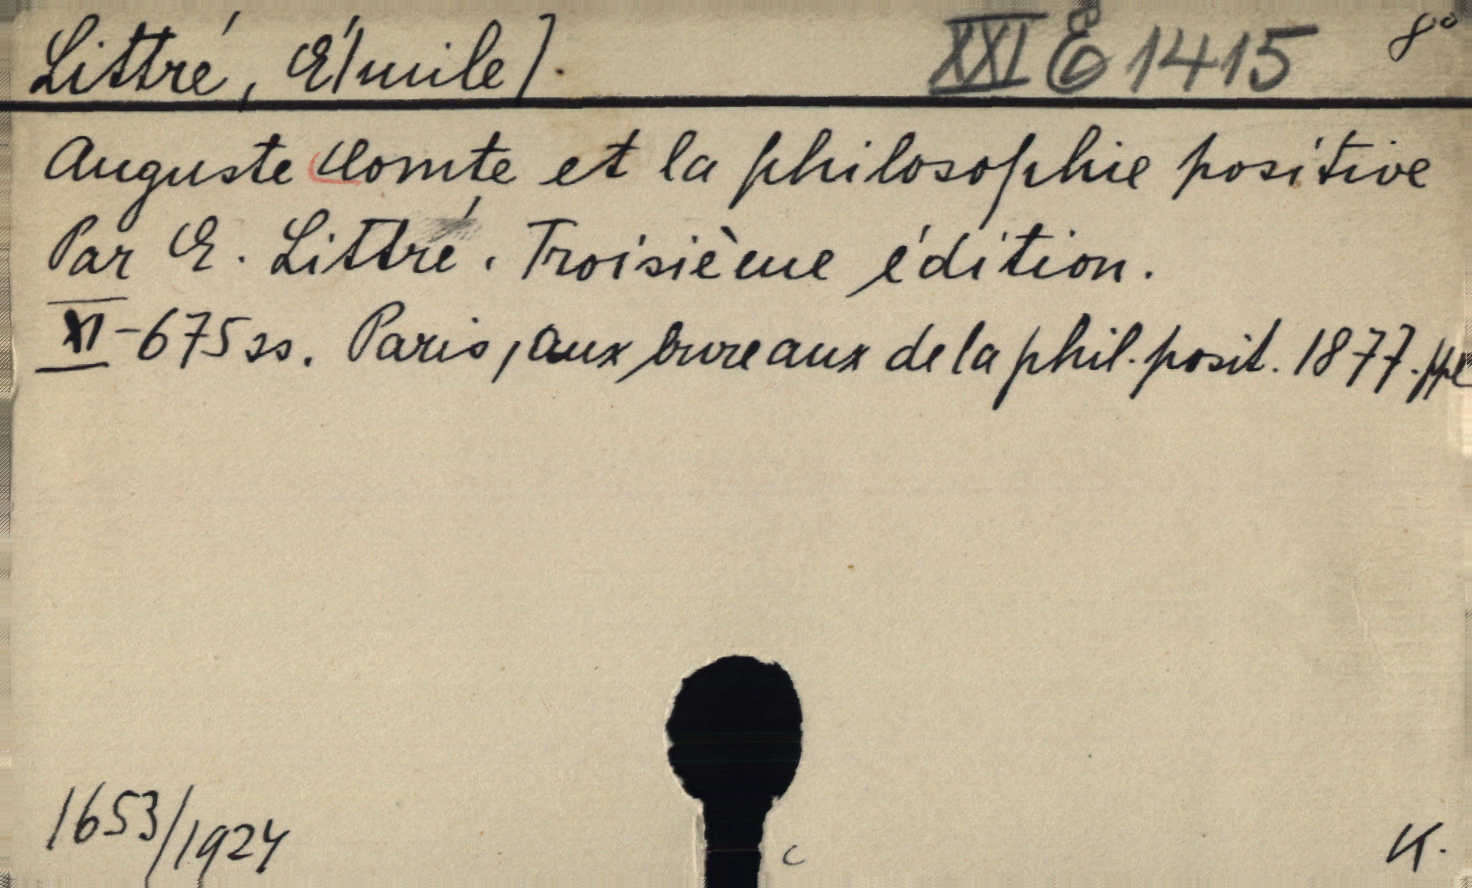 Littré, E[mile].
XXI E 1415 8°
Auguste Comte et la philosophie positive
Par E. Littré. Troisième édition.
XI-675 ss. Paris, aux bureaux de la phil. posit. 1877. ppl
1653/1924
c
K.